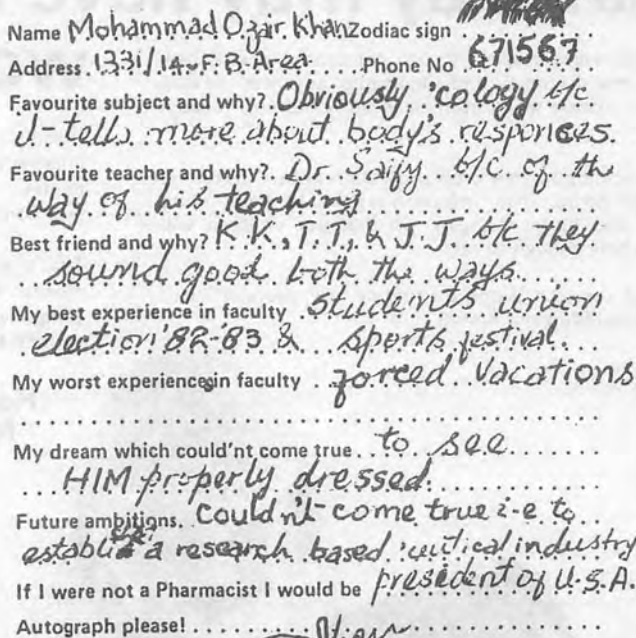 Name Mohammad Ozair Khan Zodiac sign
Address 1331/14 F.B. Area Phone No 671567
Favourite subject and why? Obviously 'cology b/c
it tells more about body's responces.
Favourite teacher and why? Dr. Saify b/c of the
way of his teaching
Best friend and why? K.K., T.T., & J.J. b/c they
sound good both the ways
My best experience in faculty students union
election '82-'83 & sports festival.
My worst experience in faculty forced vacations
My dream which could'nt come true to see
HIM properly dressed.
Future ambitions. Couldn't come true i-e to
establish a research based 'ceutical industry
If I were not a Pharmacist I would be president of U.S.A.
Autograph please!